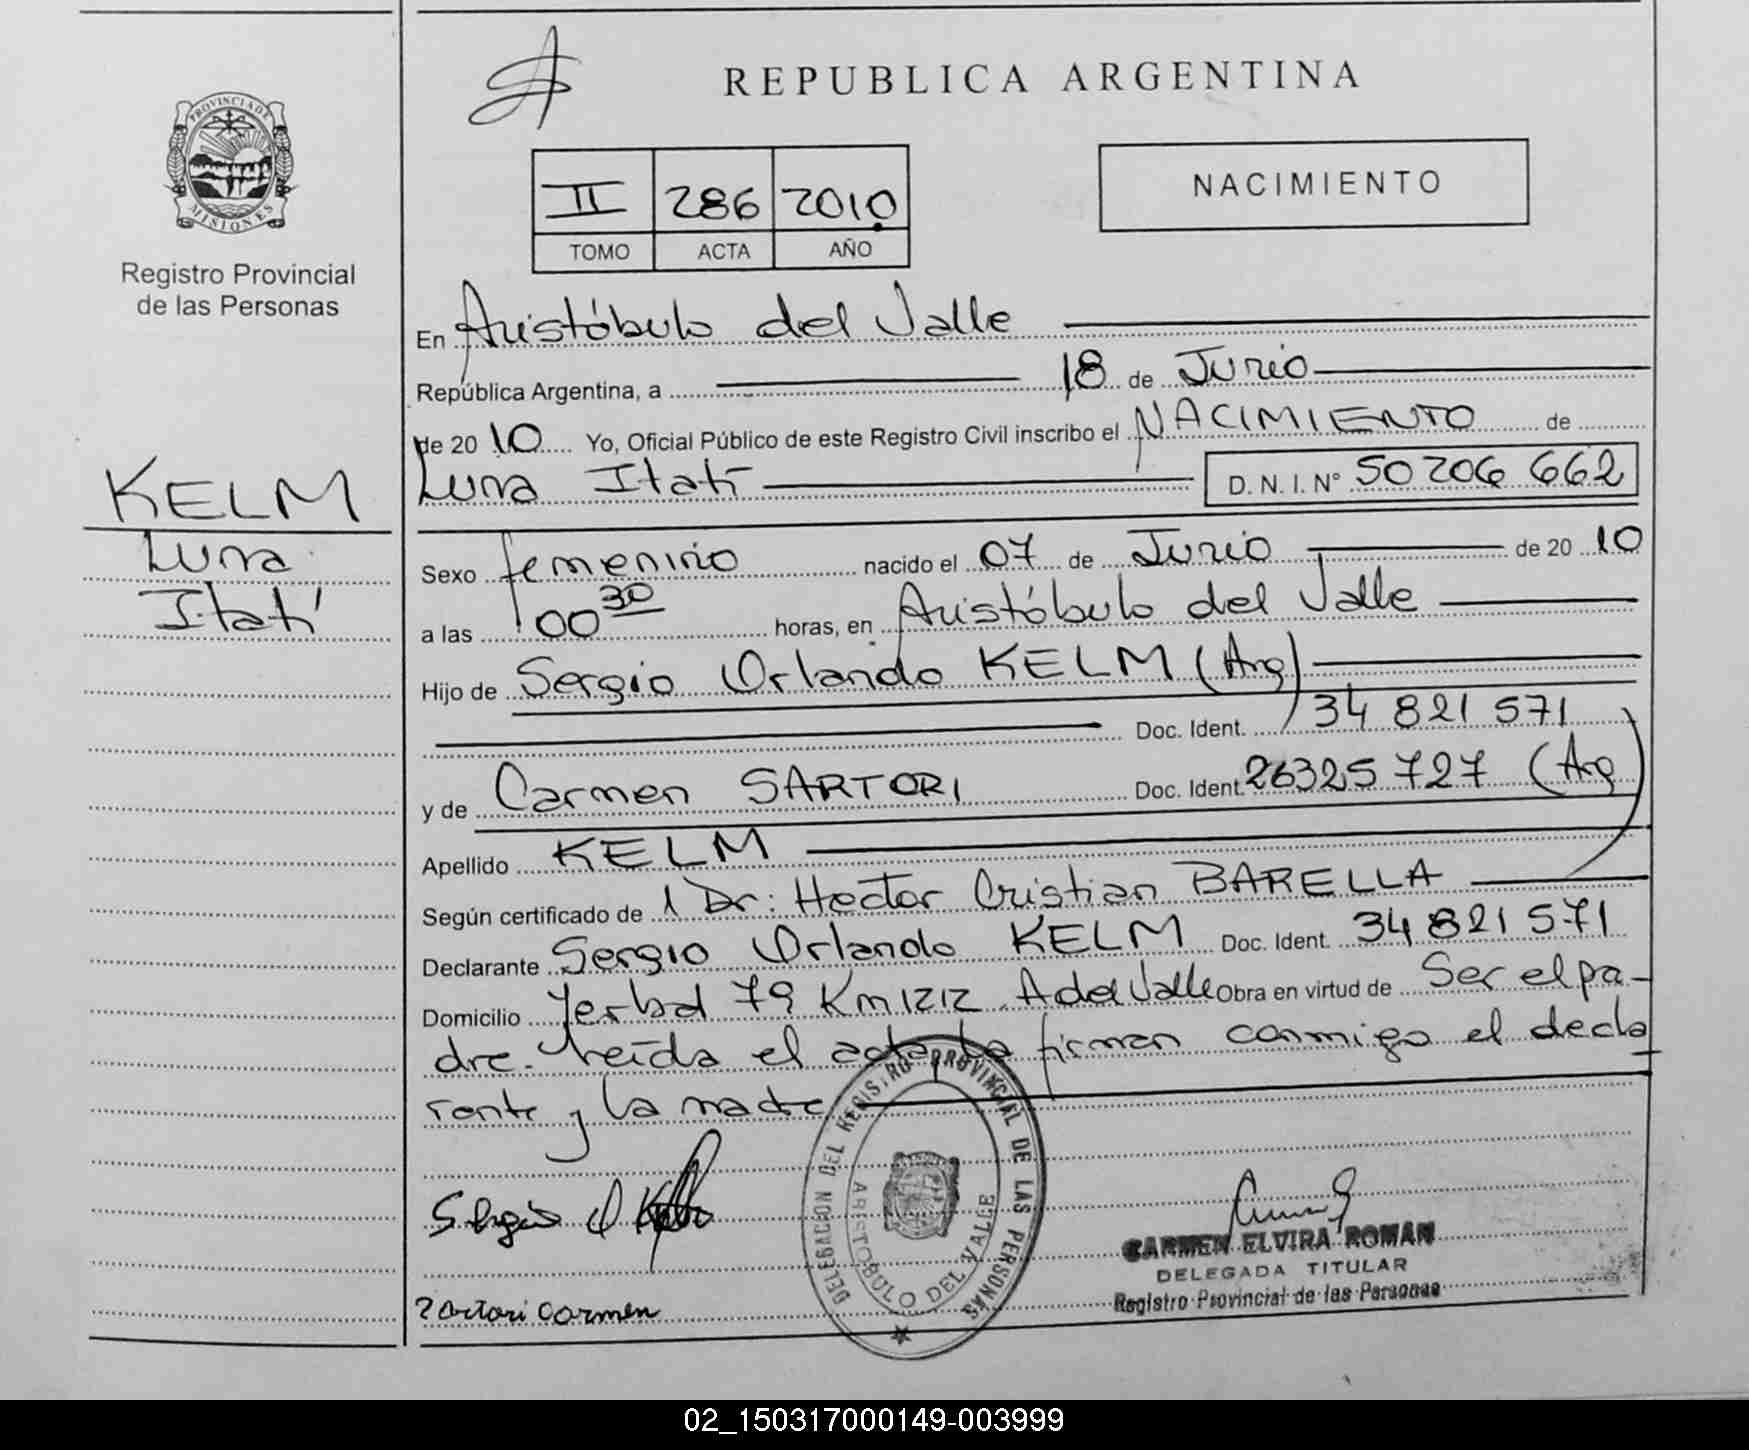 REPUBLICA ARGENTINA
PROVINCIA DE
MISIONES
Registro Provincial
de las Personas
II 286 2010
TOMO ACTA AÑO
NACIMIENTO
En Aristóbulo del Valle
República Argentina, a 18 de Junio
de 2010 Yo, Oficial Público de este Registro Civil inscribo el NACIMIENTO de
Luna Itatí D. N. I. N° 50 206 662
KELM
Luna
Itatí
Sexo femenino nacido el 07 de Junio de 2010
a las 00 30 horas, en Aristóbulo del Valle
Hijo de Sergio Orlando KELM (Arg)
Doc. Ident. 34 821 571
y de Carmen SARTORI Doc. Ident. 26325 727 (Arg)
Apellido KELM
Según certificado de l Dr: Hector Cristian BARELLA
Declarante Sergio Orlando KELM Doc. Ident. 34 821 571
Domicilio Yerbal 79 Km 1212 A del Valle Obra en virtud de Ser el pa-
dre. Leída el acta la firman conmigo el decla
rante y la madre
DELEGACION DEL REGISTRO PROVINCIAL DE LAS PERSONAS
ARISTOBULO DEL VALLE
CARMEN ELVIRA ROMAN
DELEGADA TITULAR
Registro Provincial de las Personas
Sartori Carmen
02_150317000149-003999